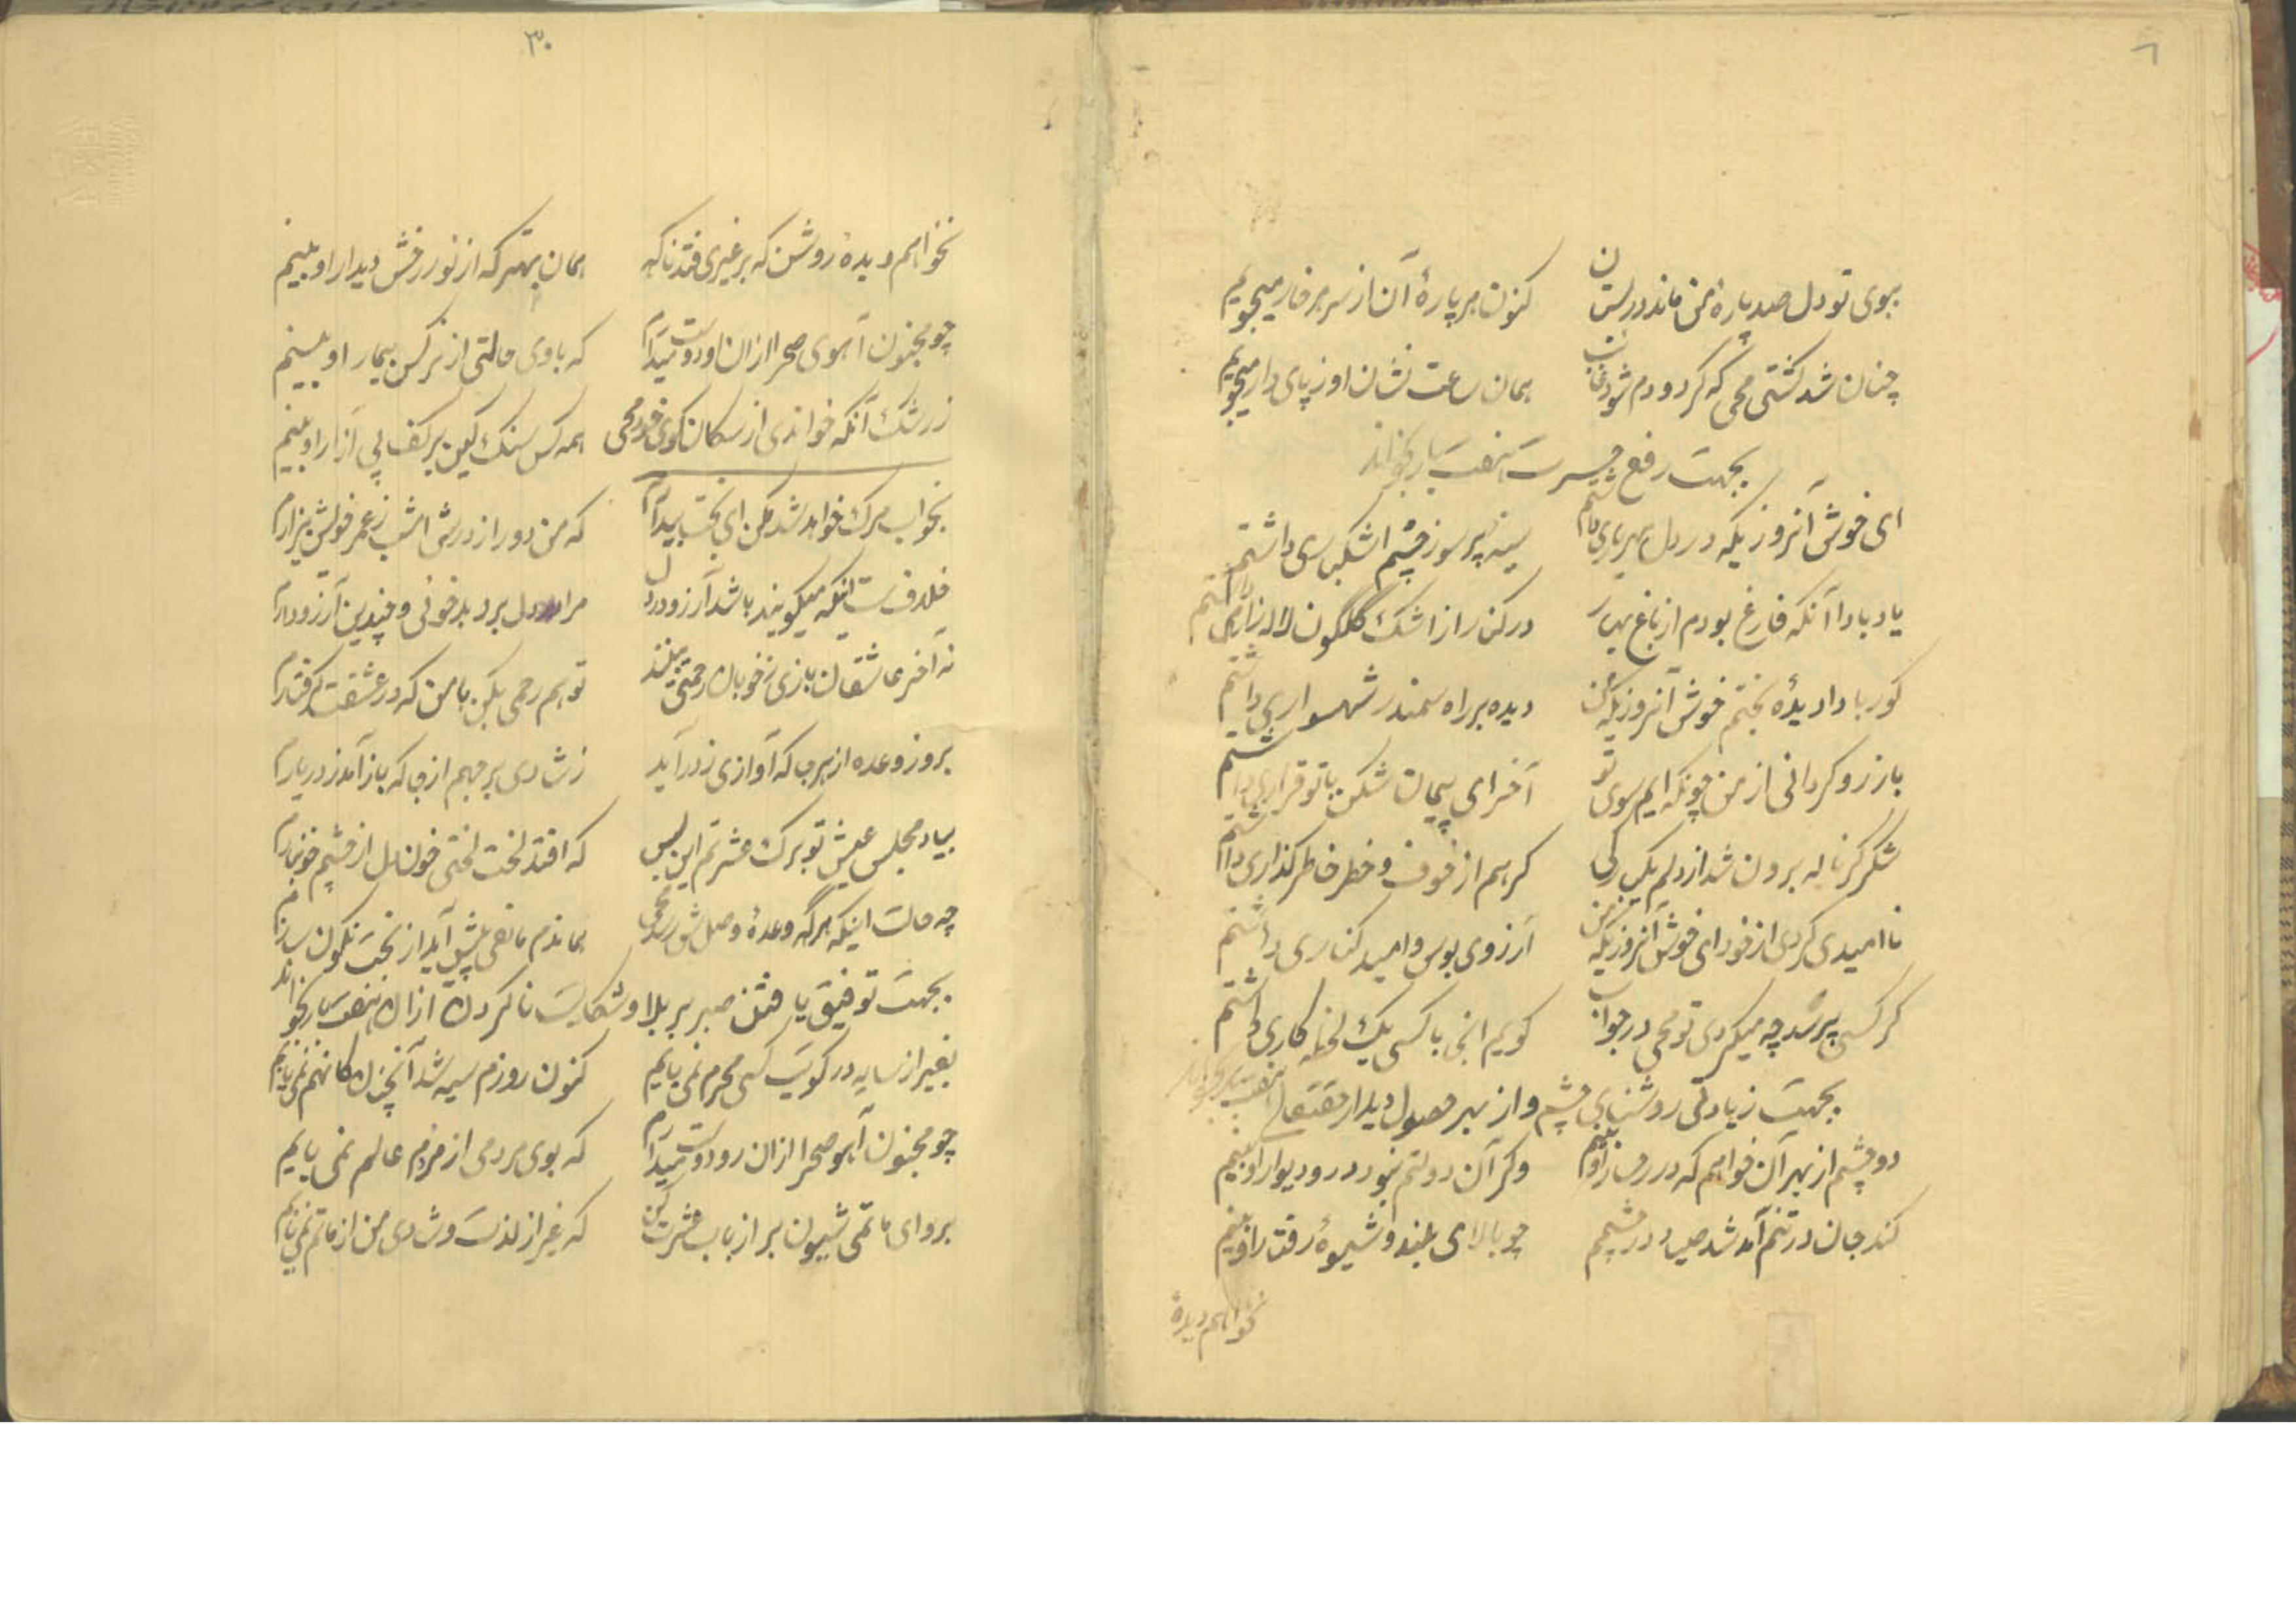 ببوی تو دل صد پارهٔ من ماند در بستان کنون هر پارهٔ آن از سر هر خار میجویم
چنان شد کشتی محیی که گر دو دم شود غایب همان ساعت نشان او ز پای دار میجویم
بجهت رفع بخواند
ای خوش آنروزیکه در دل مهر یاری داشتم سینه پر سوز چشم اشکباری داشتم
یاد بادا آنکه فارغ بودم از باغ بهار در کنار از اشک گلگون لاله زاری داشتم
کور بادا دیدهٔ بختم خوش آنروزیکه من دیده بر راه سمند شهسواری داشتم
باز رو گردانی از من چونکه ایم سوی تو آخر ای پیمان شکن با تو قراری داشتم
شکر کز ناله برون شد از دلم گر هم از خوف و خطر خاطر گذاری داشتم
ناامیدی کردی از خود ای خوش آنروزیکه من آرزوی بوس و امید کناری داشتم
گر کسی پرسد چه میکردی تو محیی در جواب گویم انجا با کسی یک لحظه کاری داشتم
بجهت زیادتی روشنایی چشم و از بهر حصول دیدار حقتعالی بخواند
دو چشم از بهر آن خواهم که در رخسار او بینم وگر آن دولتم نبود در و دیوار او بینم
کند جان در تنم آمد شد در چشمم چو بالای بلند و شیوهٔ رفتار او بینم
نخواهم دیدهٔ
۳۰
نخواهم دیدهٔ روشن که بر غیری فتد ناگه همان بهتر که از نور رخش دیدار او بینم
چو مجنون آهوی صحرا ازان رو دوست میدارم که با وی حالتی از نرگس بیمار او بینم
ز رشک آنکه خواندی از سکان کوی خود محیی همه کس سنگ کین بر کف پی آزار او بینم
بخواب مرگ خواهد شد مکن ای بخت بیدارم که من دور از درش امشب ز عمر خویش بیزارم
خلاف ست اینکه میگویند باشد آرزو در دل مرا دل برد بدخوئی و چندین آرزو دارم
نه آخر عاشقان بازی ز خوبان رحمتی بینند تو هم رحمی بکن با من که در عشقت گرفتارم
بروز وعده از هر جا که آوازی ز در آید ز شادی بر جهم از جا که باز آمد ز در یارم
بیاد مجلس عیش تو برگ عشرتم این بس که افتد لخت لختی خون دل از چشم خونبارم
چه حالت اینکه هر گه وعدهٔ وصلش رسد محیی هماندم مانعی پیش آید از بخت نگونسارم
بجهت توفیق یافتن صبر بر بلا و شکایت ناکردن ازان بخواند
بغیر از سایه در کویت کسی محرم نمی یابم کنون روزم سیه شد آنچنان کانهم نمی یابم
چو مجنون آهو صحرا ازان رو دوست میدارم که بوی مردمی از مردم عالم نمی یابم
برو ای ماتمی شیون بر ارباب عشرت کن که غیر از لذت و شادی من از ماتم نمی یابم